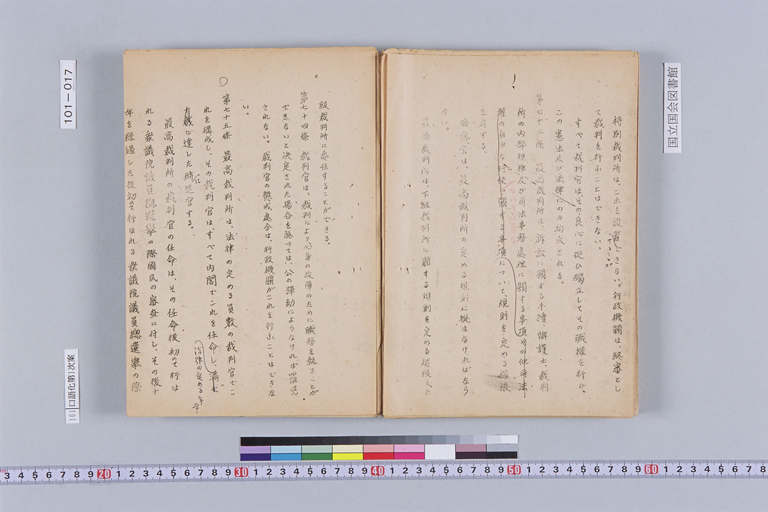 特別裁判所は、これを設置できない。行政機關は、終審とし
て裁判を行ふことはできない。
すべて裁判官は、その良心に從ひ獨立してその職權を行ひ、
この憲法及び法律にのみ拘束される。
第七十三條 最高裁判所は、訴訟に關する手續、辯護士、裁判
所の内部規律及び司法事務處理に關する事項
に關する事項について、規則を定める權限
を有する。
檢察官は、最高裁判所の定める規則に從はなければならな
い。
最高裁判所は、下級裁判所に關する規則を定める權限を下
級裁判所に委任することができる。
第七十四條 裁判官は、裁判により心身の故障のために職務を執ることが
できないと決定された場合を除いては、公の彈劾によらなければ罷免
されない。裁判官の懲戒處分は、行政機關がこれを行ふことはできな
い。
第七十五條 最高裁判所は、法律の定める員數の裁判官でこ
れを構成し、その裁判官はすべて内閣でこれを任命し、
法律の定める年令
に達した時退官する。
最高裁判所の裁判官の任命は、その任命後初めて行は
れる衆議院議員總選擧の際國民の審査に付し、その後十
年を經過した後初めて行はれる衆議院議員總選擧の際
101-017
国立国会図書館
101 口語化第1次案
3 4 5 6 7 8 9 20 1 2 3 4 5 6 7 8 9 30 1 2 3 4 5 6 7 8 9 40 1 2 3 4 5 6 7 8 9 50 1 2 3 4 5 6 7 8 9 60 1 2 3 4 5 6 7 8